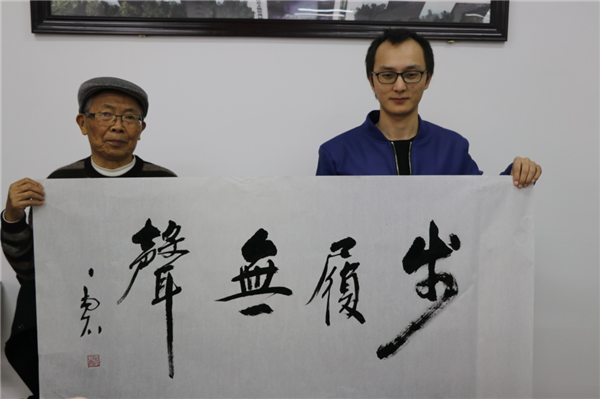 步履無聲